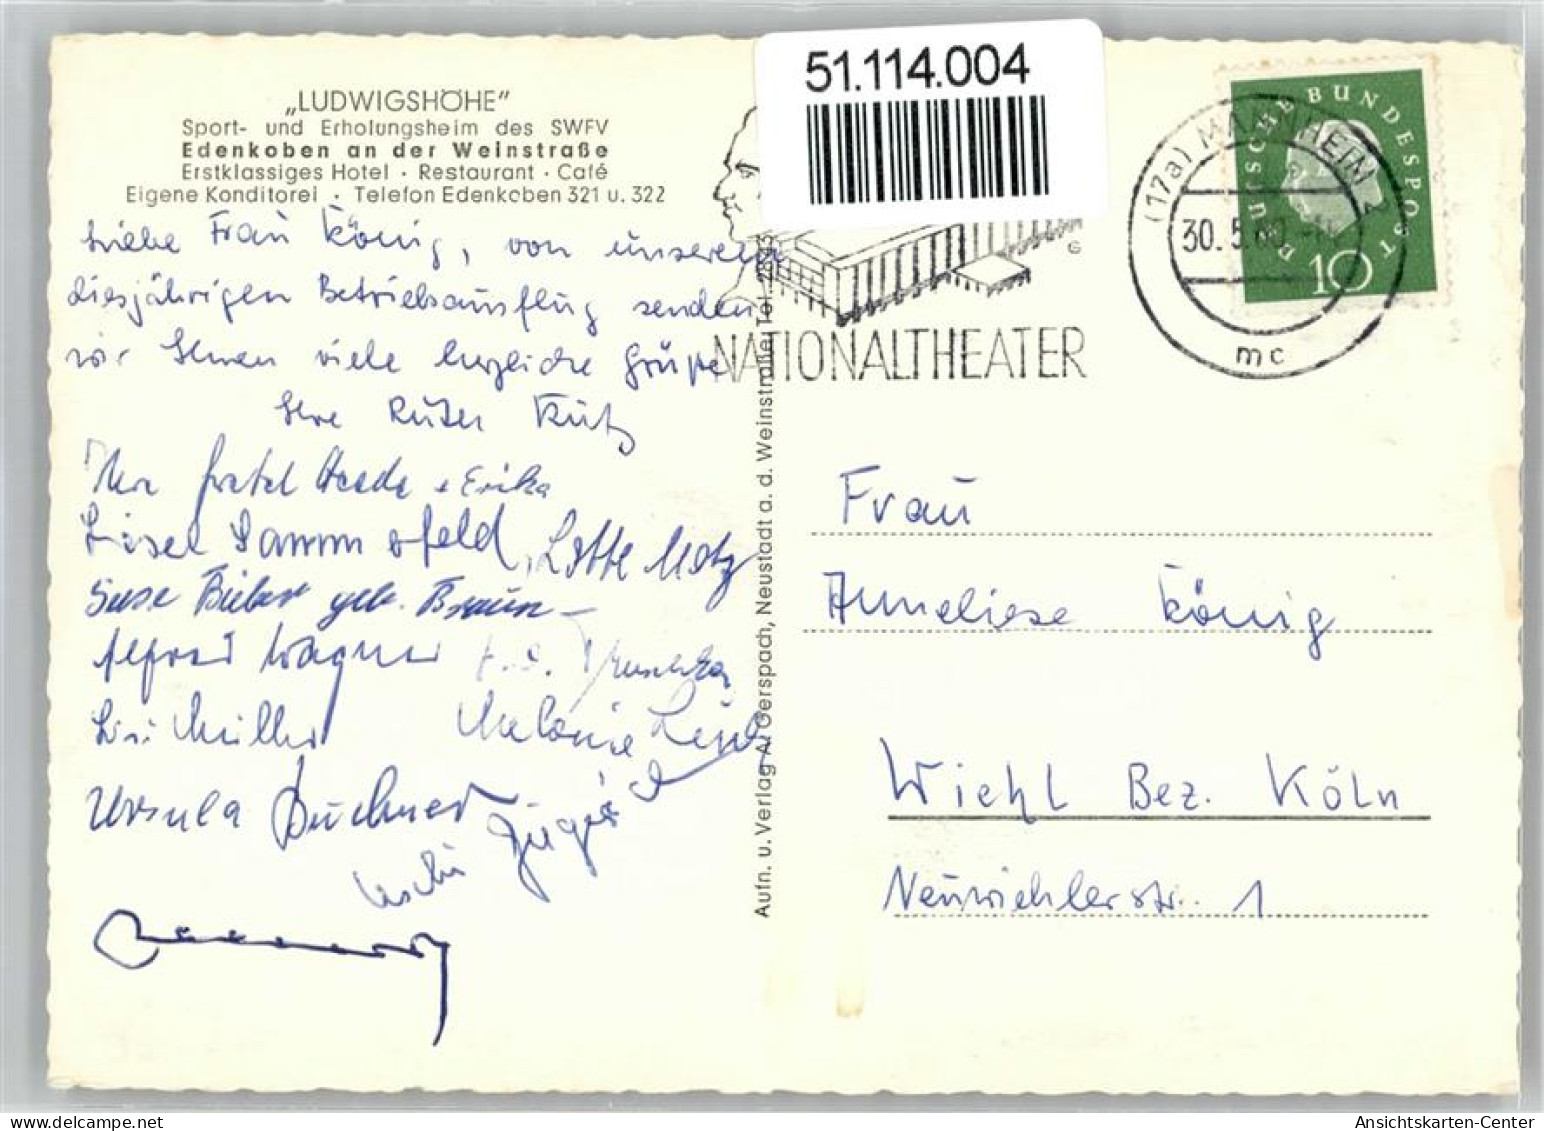 „LUDWIGSHÖHE"
Sport- und Erholungsheim des SWFV
Edenkoben an der Weinstraße
Erstklassiges Hotel · Restaurant · Café
Eigene Konditorei · Telefon Edenkoben 321 u. 322
Liebe Frau König, von unserem
diesjährigen Betriebsausflug senden
wir Ihnen viele herzliche Grüße
Ihre
Ihre Gretel Heede + Erika
Liesel Dammsfeld, Lotte Metz
Suse Bieber geb. Braun
Alfred Wagner
Müller Melanie
Ursula Buchner
Uschi
51.114.004
NATIONALTHEATER
(17a) MANNHEIM
30. 5. 60
mc
DEUTSCHE BUNDESPOST
10
Aufn. u. Verlag A. Gerspach, Neustadt a. d. Weinstraße, Tel.
Frau
Anneliese König
Wiehl Bez. Köln
Neuwiehlerstr. 1
www.delcampe.net
Ansichtskarten-Center